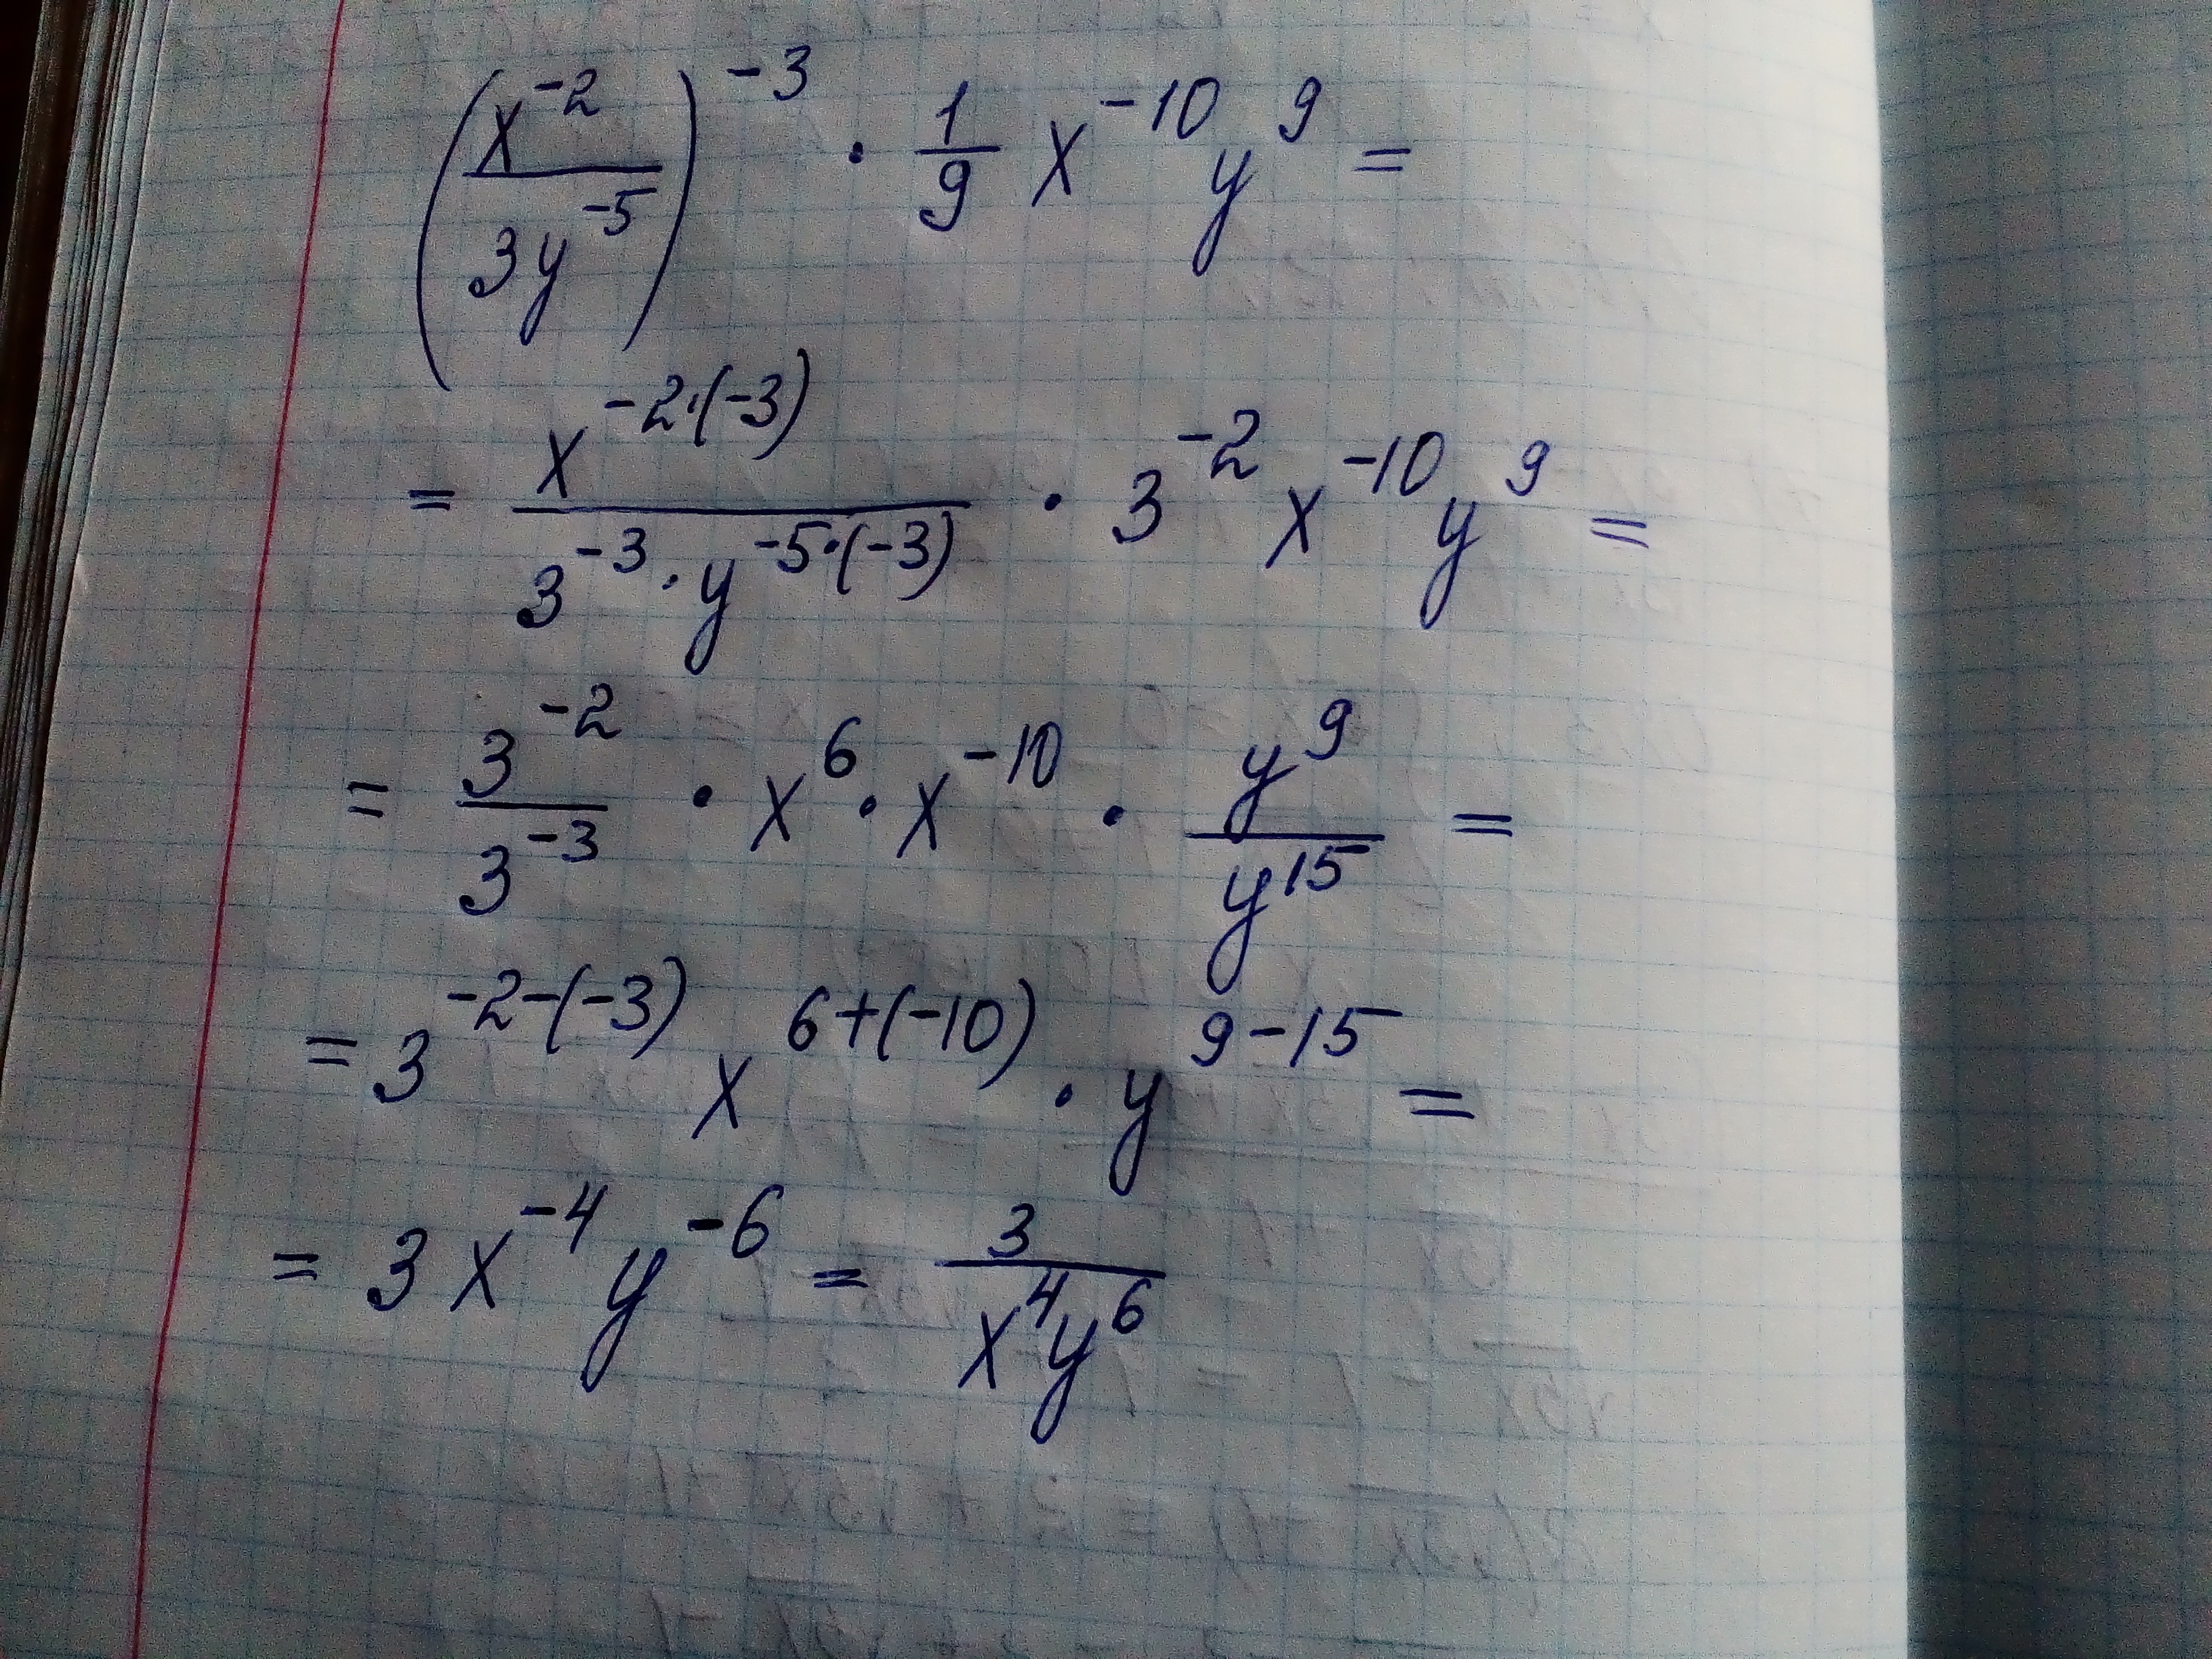 (x^-2 / 3y^-5)^-3 · 1/9 x^-10 y^9 =
= x^-2·(-3) / 3^-3 · y^-5·(-3) · 3^-2 x^-10 y^9 =
= 3^-2 / 3^-3 · x^6 · x^-10 · y^9 / y^15 =
= 3^-2-(-3) x^6+(-10) · y^9-15 =
= 3 x^-4 y^-6 = 3 / x^4 y^6